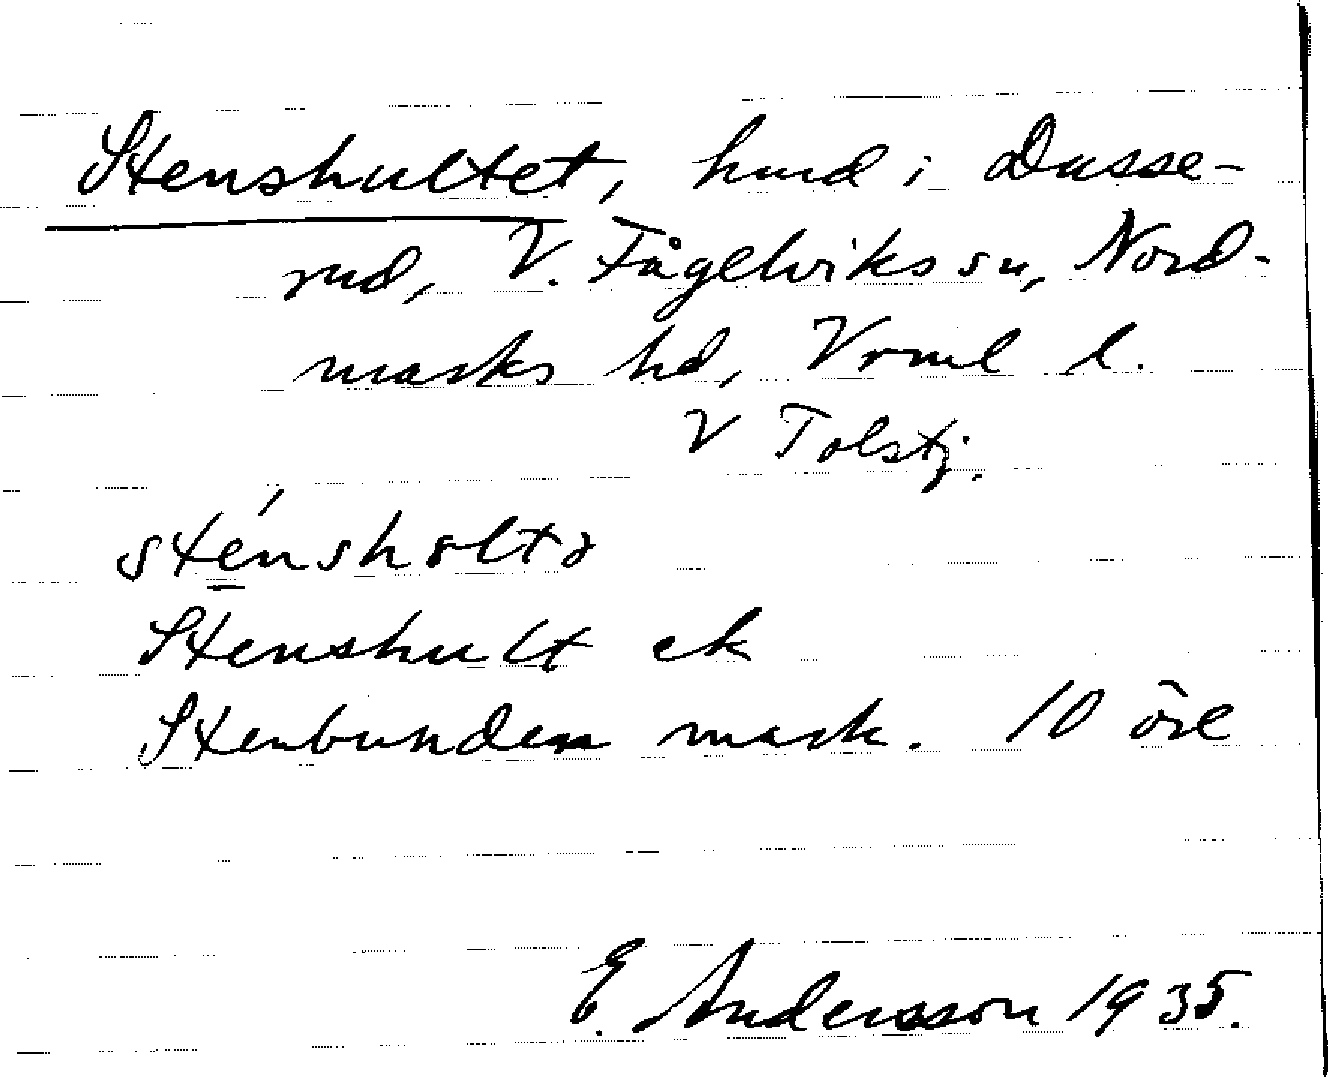 Stenshultet, hmd i Dusse-
rud, V. Fågelviks sn, Nord-
marks hd, Vrml l.
V Tolstj.
sténsholtə
Stenshult ek
Stenbunden mark. 10 öre
E. Andersson 1935.